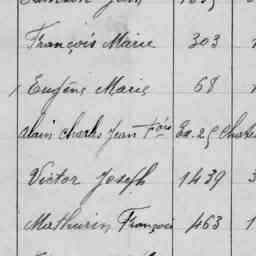 François Marie 303
Eugène Marie 68
Alain Charles Jean Fois Ex. 29
Victor Joseph 1439 3
Mathurin François 463 1